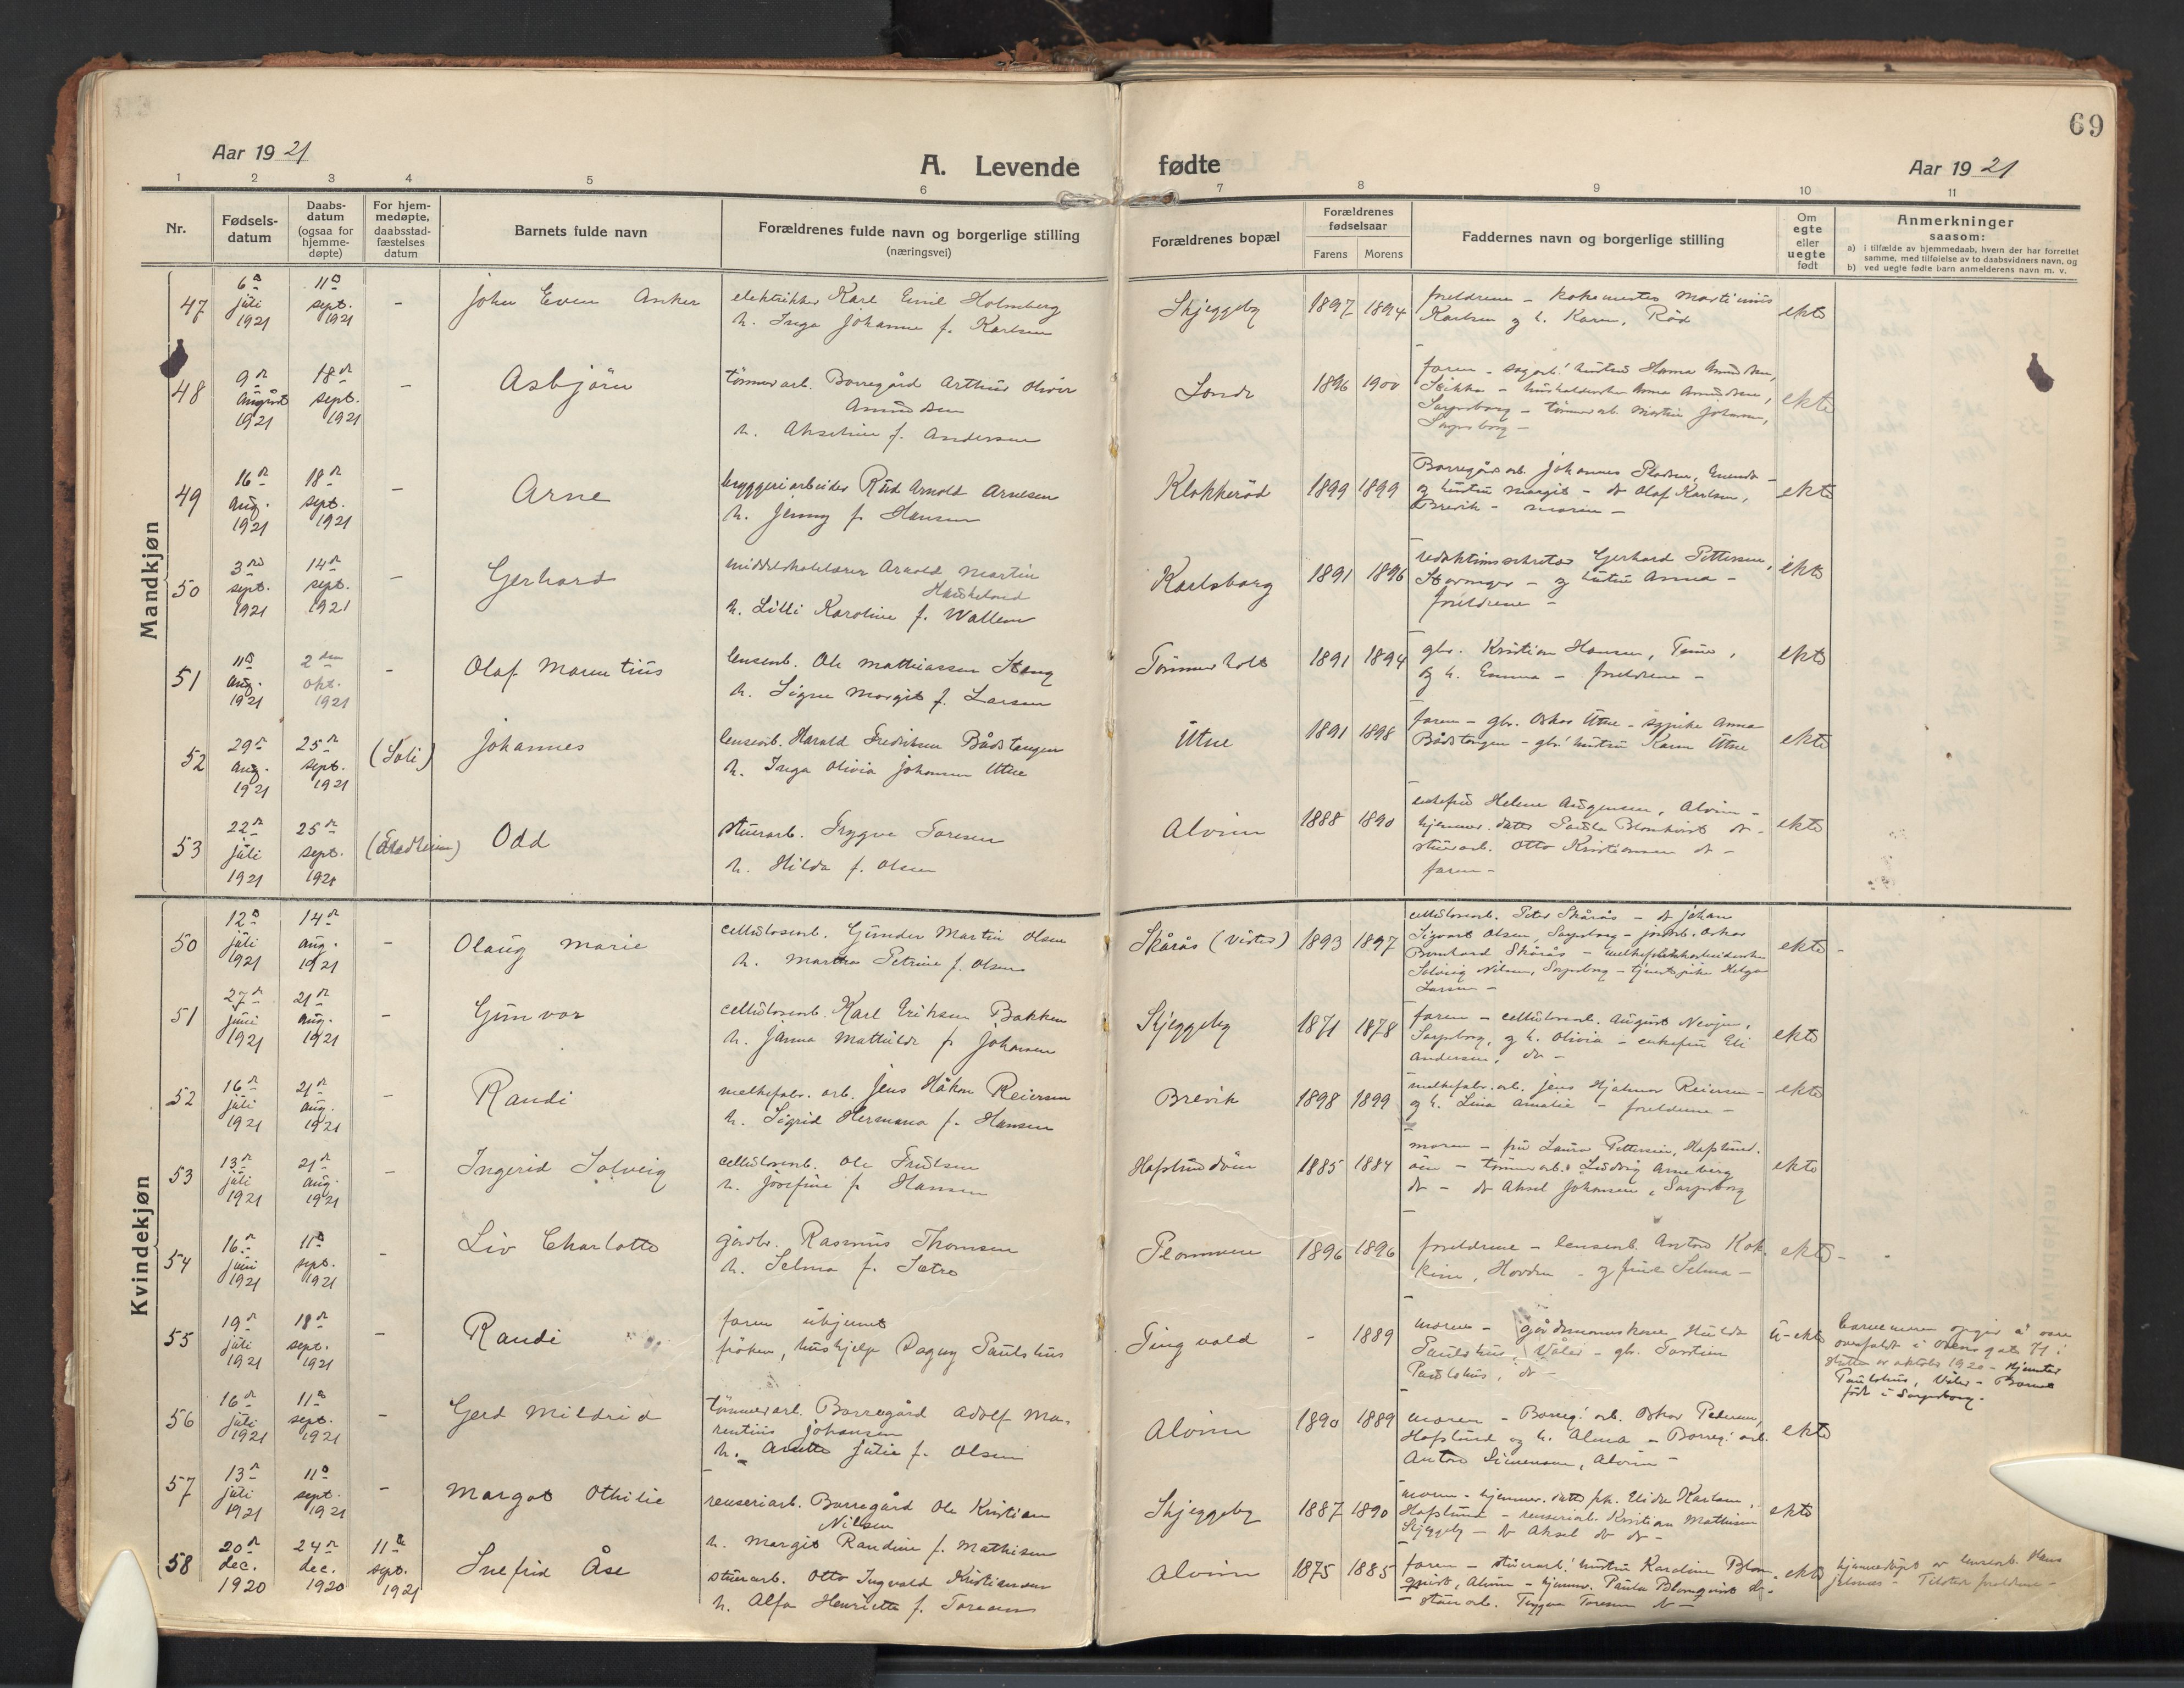 69
Aar 1921
A. Levende fødte
Aar 1921
1 2 3 4 5 6 7 8 9 10 11
Nr.
Fødsels-
datum
Daabs-
datum
(ogsaa for
hjemme-
døpte)
For hjem-
medøpte,
daabsstad-
fæstelses
datum
Barnets fulde navn
Forældrenes fulde navn og borgerlige stilling
(næringsvei)
Forældrenes bopæl
Forældrenes
fødselsaar
Farens Morens
Faddernes navn og borgerlige stilling
Om
egte
eller
uegte
født
Anmerkninger
saasom:
a) i tilfælde av hjemmedaab, hvem der har forrettet
samme, med tilføielse av to daabsvidners navn, og
b) ved uegte fødte barn anmelderens navn m. v.
Mandkjøn
47 6 juli 1921 11 sept. 1921 - John Even Anker
elektriker Karl Emil Holmberg
h. Inga Johanne f. Karlsen
Skjeggeby 1897 1894
foreldrene - kokemester Martinius
Karlsen og h. Karen, Rød
ekte
48 9 august 1921 18 sept. 1921 - Asbjörn
tömmerarb. Borregård Arthur Oliver
Amundsen
h. Akseline f. Andersen
Sande 1896 1900
faren - sagarb. hustru Hanna Amundsen,
husholderske Anna Amundsen,
Sarpsborg - tömmerarb. Martin Johansen,
Sarpsborg -
ekte
49 16 aug. 1921 18 sept. 1921 - Arne
bryggeriarbeider Rud Arnold Arnesen
h. Jenny f. Hansen
Klokkeröd 1899 1899
Borregård arb. Johannes
og hustru Margit - do Olaf Karlsen,
Brevik - moren -
ekte
50 3 sept. 1921 14 sept. 1921 - Gerhard
middelskolelærer Arnold Martin
Haukeland
h. Lilli Karoline f. Wallem
Karlsborg 1891 1896
redaktionssekretær Gerhard Pettersen,
Stavanger - og hustru Anna -
foreldrene -
ekte
51 11 aug. 1921 2den okt. 1921 - Olaf Marentius
lensearb. Ole Mathiassen Stang
h. Signe Margit f. Larsen
Tømmerholt 1891 1894
gbr. Kristian Hansen, Tune,
og h. Emma - foreldrene -
ekte
52 29 aug. 1921 25 sept. 1921 (Soli) Johannes
lensearb. Harald Fredriksen Bådstangen
h. Inga Olivia Johansen Utne
Utne 1891 1898
faren - gbr. Oskar Utne - sypike Anna
Bådstangen - gbr. hustru Karen Utne
ekte
53 22 juli 1921 25 sept. 1921 Odd
stuerarb. Trygve Toresen
h. Hilda f. Olsen
Alvim 1888 1890
enkefru Helene Augensen, Alvim -
hjemmev. datter Paula Blomkvist do -
stuerarb. Otto Kristiansen do -
faren -
ekte
Kvindekjøn
50 12 juli 1921 14 aug. 1921 - Olaug Marie
cellulosearb. Gunder Martin Olsen
h. Martha Petrine f. Olsen
Skårås (Vister) 1893 1897
cellulosearb. Peter Skårås - do Johan
Sigvart Olsen, Sarpsborg - jordarb. Oskar
Bernhard Skårås - melkefabrikkarbeiderske
Solveig Nilsen, Sarpsborg - tjenestepike Helga
Larsen -
ekte -
51 27 juni 1921 21 aug. 1921 - Gunvor
cellulosearb. Karl Eriksen Bakken
h. Janna Mathilde f. Johansen
Skjeggeby 1871 1878
faren - cellulosearb. August
Sarpsborg, og h. Olivia - enkefru Eli
Andersen, do -
ekte
52 16 juli 1921 21 aug. 1921 - Randi
melkefabr. arb. Jens Håkon Reiersen
h. Sigrid Hermana f. Hansen
Brevik 1898 1899
melkefabr. arb. Jens Hjalmar Reiersen -
og h. Lina Amalie - foreldrene -
ekte
53 13 juli 1921 21 aug. 1921 - Ingerid Solveig
cellulosearb. Ole Trulsen
h. Josefine f. Hansen
Hafslundöen 1885 1884
moren - fru Laura Pettersen, Hafslund-
öen - tömmerarb. Ludvig Arneberg
do - do Aksel Johansen, Sarpsborg
ekte
54 16 juni 1921 11 sept. 1921 - Liv Charlotte
gårdbr. Rasmus Thomsen
h. Selma f. Sætre
1896 1896
foreldrene - lensearb. Anton Kok-
kim, Hovden - og frue Selma -
ekte -
55 19 juli 1921 18 sept. 1921 - Randi
faren ubekjent
fröken, hushjelp Dagny Paulshus
Tingvold - 1889
moren - gårdmannskone Hulda
Paulshus, Våler - gbr.
Paulshus, do -
u-ekte
barnemoren opgir å være
overfaldt i Osens gate 71 i
oktober 1920 -
Paulshus, Våler - Barnet
födt i Sarpsborg.
56 16 juli 1921 11 sept. 1921 - Gerd Mildrid
tömmerarb. Borregård Adolf Ma-
rentius Johansen
h. Anette Julie f. Olsen
Alvim 1890 1889
moren - Borreg. arb. Oskar Pedersen,
Hafslund og h. Alma - Borreg. arb.
Anton Simensen, Alvim -
ekte
57 13 juli 1921 11 sept. 1921 - Margot Othilie
renseriarb. Borregård Ole Kristian
Nilsen
h. Margit Randine f. Mathisen
Skjeggeby 1887 1890
moren - hjemmev. datter frk. Elida Karlsen,
Hafslund - renseriarb. Kristian Mathisen
Skjeggeby - do Aksel do do -
ekte
58 20 dec. 1920 24 dec. 1920 11 sept. 1921 Snefrid Åse
stuerarb. Otto Ingvald Kristiansen
h. Alfa Henriette f. Toresen
Alvim 1875 1885
faren - stuerarb. hustru Karoline Blom-
quist, Alvim - hjemmev. Paula Blomquist do -
stuerarb. Trygve Toresen do -
ekte
hjemmedöpt av lensearb. Hans
foreldrene -